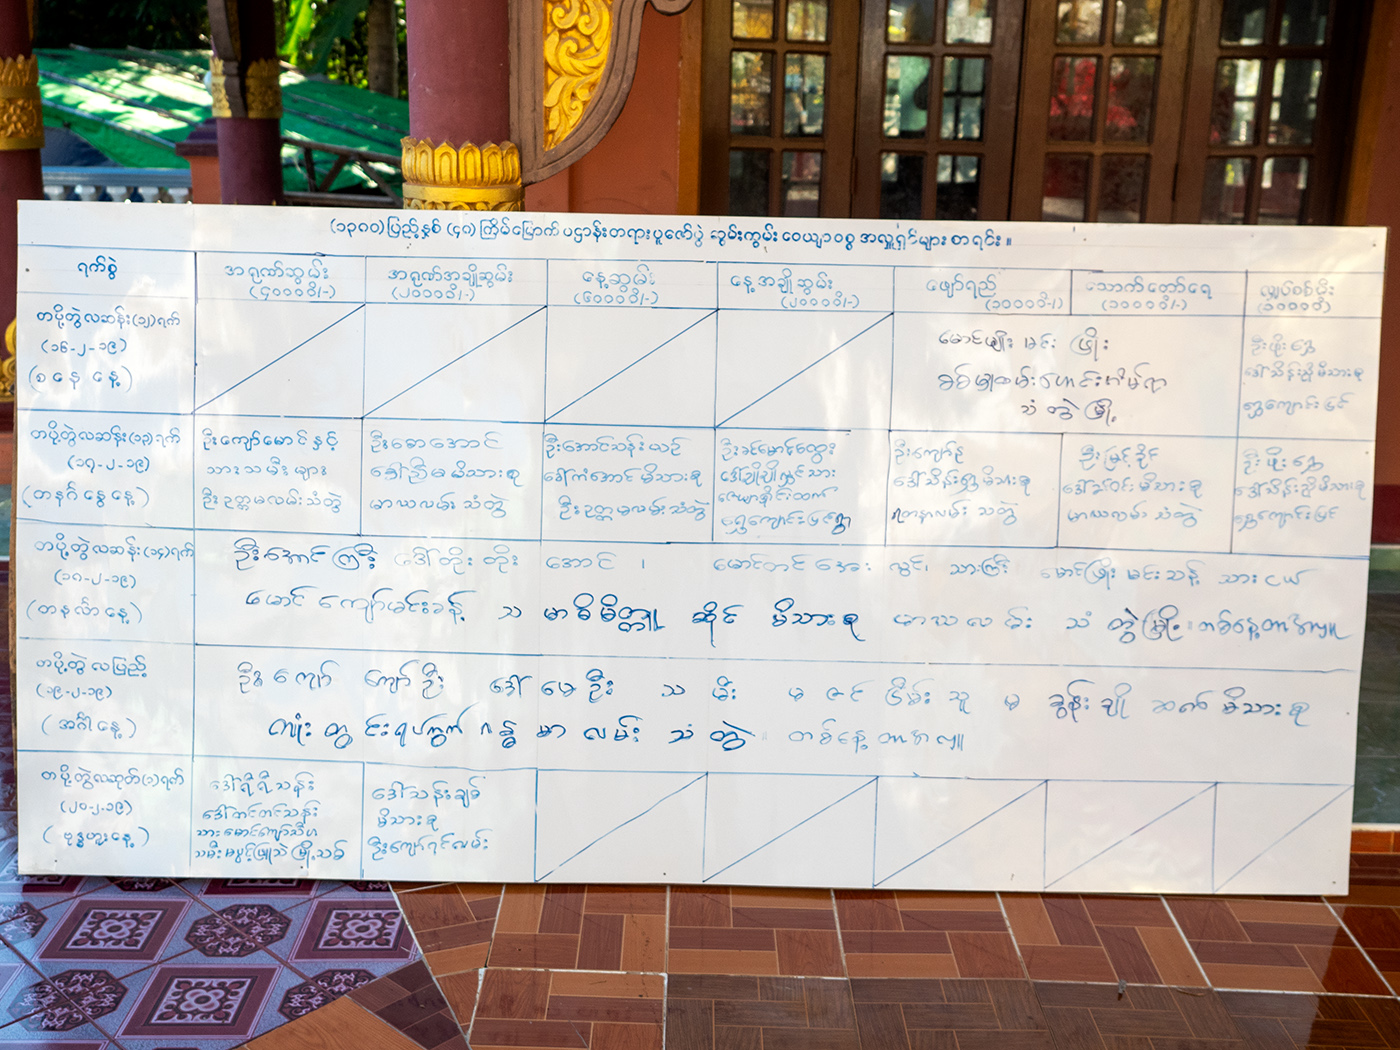 (၁၃၈၀)ပြည့်နှစ် (၄၈) ကြိမ်မြောက် ပဋ္ဌာန်းတရားပူဇော်ပွဲ ဆွမ်းကွမ်း ဝေယျာဝစ္စ အလှူရှင်များ စာရင်း။
ရက်စွဲ
အရုဏ်ဆွမ်း
(၄၀၀၀၀ိ/-)
အရုဏ်အချိုဆွမ်း
(၂၀၀၀၀ိ/-)
နေ့ဆွမ်း
(၆၀၀၀၀ိ/-)
နေ့အချိုဆွမ်း
(၂၀၀၀၀ိ/-)
ဖျော်ရည်
(၁၀၀၀၀ိ/-)
သောက်တော်ရေ
(၁၀၀၀၀ိ/-)
တပို့တွဲလဆန်း(၁၂)ရက်
(၁၆-၂-၁၉)
(စနေ နေ့)
မောင်မျိုး မင်း ဖြိုး
သံတွဲမြို့
ဦးဖိုးရွှေ
ဒေါ်သိန်းညို မိသားစု
ရွှေကျောင်းပြင်
တပို့တွဲလဆန်း(၁၃)ရက်
(၁၇-၂-၁၉)
(တနင်္ဂနွေနေ့)
ဦးကျော်မောင်နှင့်
သားသမီးများ
ဦးဥတ္တမလမ်း သံတွဲ
ဦးစောအောင်
ဒေါ်ညိမ မိသားစု
မာဃလမ်း သံတွဲ
ဦးအောင်သန်းယဉ်
ဒေါ်ကံအောင် မိသားစု
ဦးဥတ္တမလမ်း သံတွဲ
ဦးခင်မောင်ထွေး
ရွှေကျောင်းပြင်ရွာ
ဦးကျော်စို
ဒေါ်သိန်းရွှေ မိသားစု
ရတနာလမ်း သံတွဲ
ဦးမြင့်နိုင်
ဒေါ်ခင်ဝင်း မိသားစု
မာဃလမ်း သံတွဲ
ဦးဖိုးရွှေ
ဒေါ်သိန်းညို မိသားစု
ရွှေကျောင်းပြင်
တပို့တွဲလဆန်း(၁၄)ရက်
(၁၈-၂-၁၉)
(တနင်္လာနေ့)
ဦးအောင်ကြီး ဒေါ်တိုးတိုးအောင်၊ မောင်တင်အေးလွင်၊ သားကြီး မောင်ဖြိုးမင်းသန့် သားငယ်
မောင်ကျော်မင်းခန့် သမာဓိမိတ္တူဆိုင် မိသားစု မာဃလမ်း သံတွဲမြို့။ တစ်နေ့တာအလှူ
တပို့တွဲ လပြည့်
(၁၉-၂-၁၉)
(အင်္ဂါနေ့)
ဦးကျော်ကျော်ဦး ဒေါ်မေဦး သမီး မဇင်ငြိမ်းသူ မခွန်းချိုဆက် မိသားစု
ကျုံးတွင်းရပ်ကွက် ဂန္ဓမာလမ်း သံတွဲ။ တစ်နေ့တာအလှူ
တပို့တွဲလဆုတ်(၁)ရက်
(၂၀-၂-၁၉)
(ဗုဒ္ဓဟူးနေ့)
ဒေါ်ရီရီသန်း
ဒေါ်တင်တင်သန်း
ဒေါ်သန်းချစ်
မိသားစု